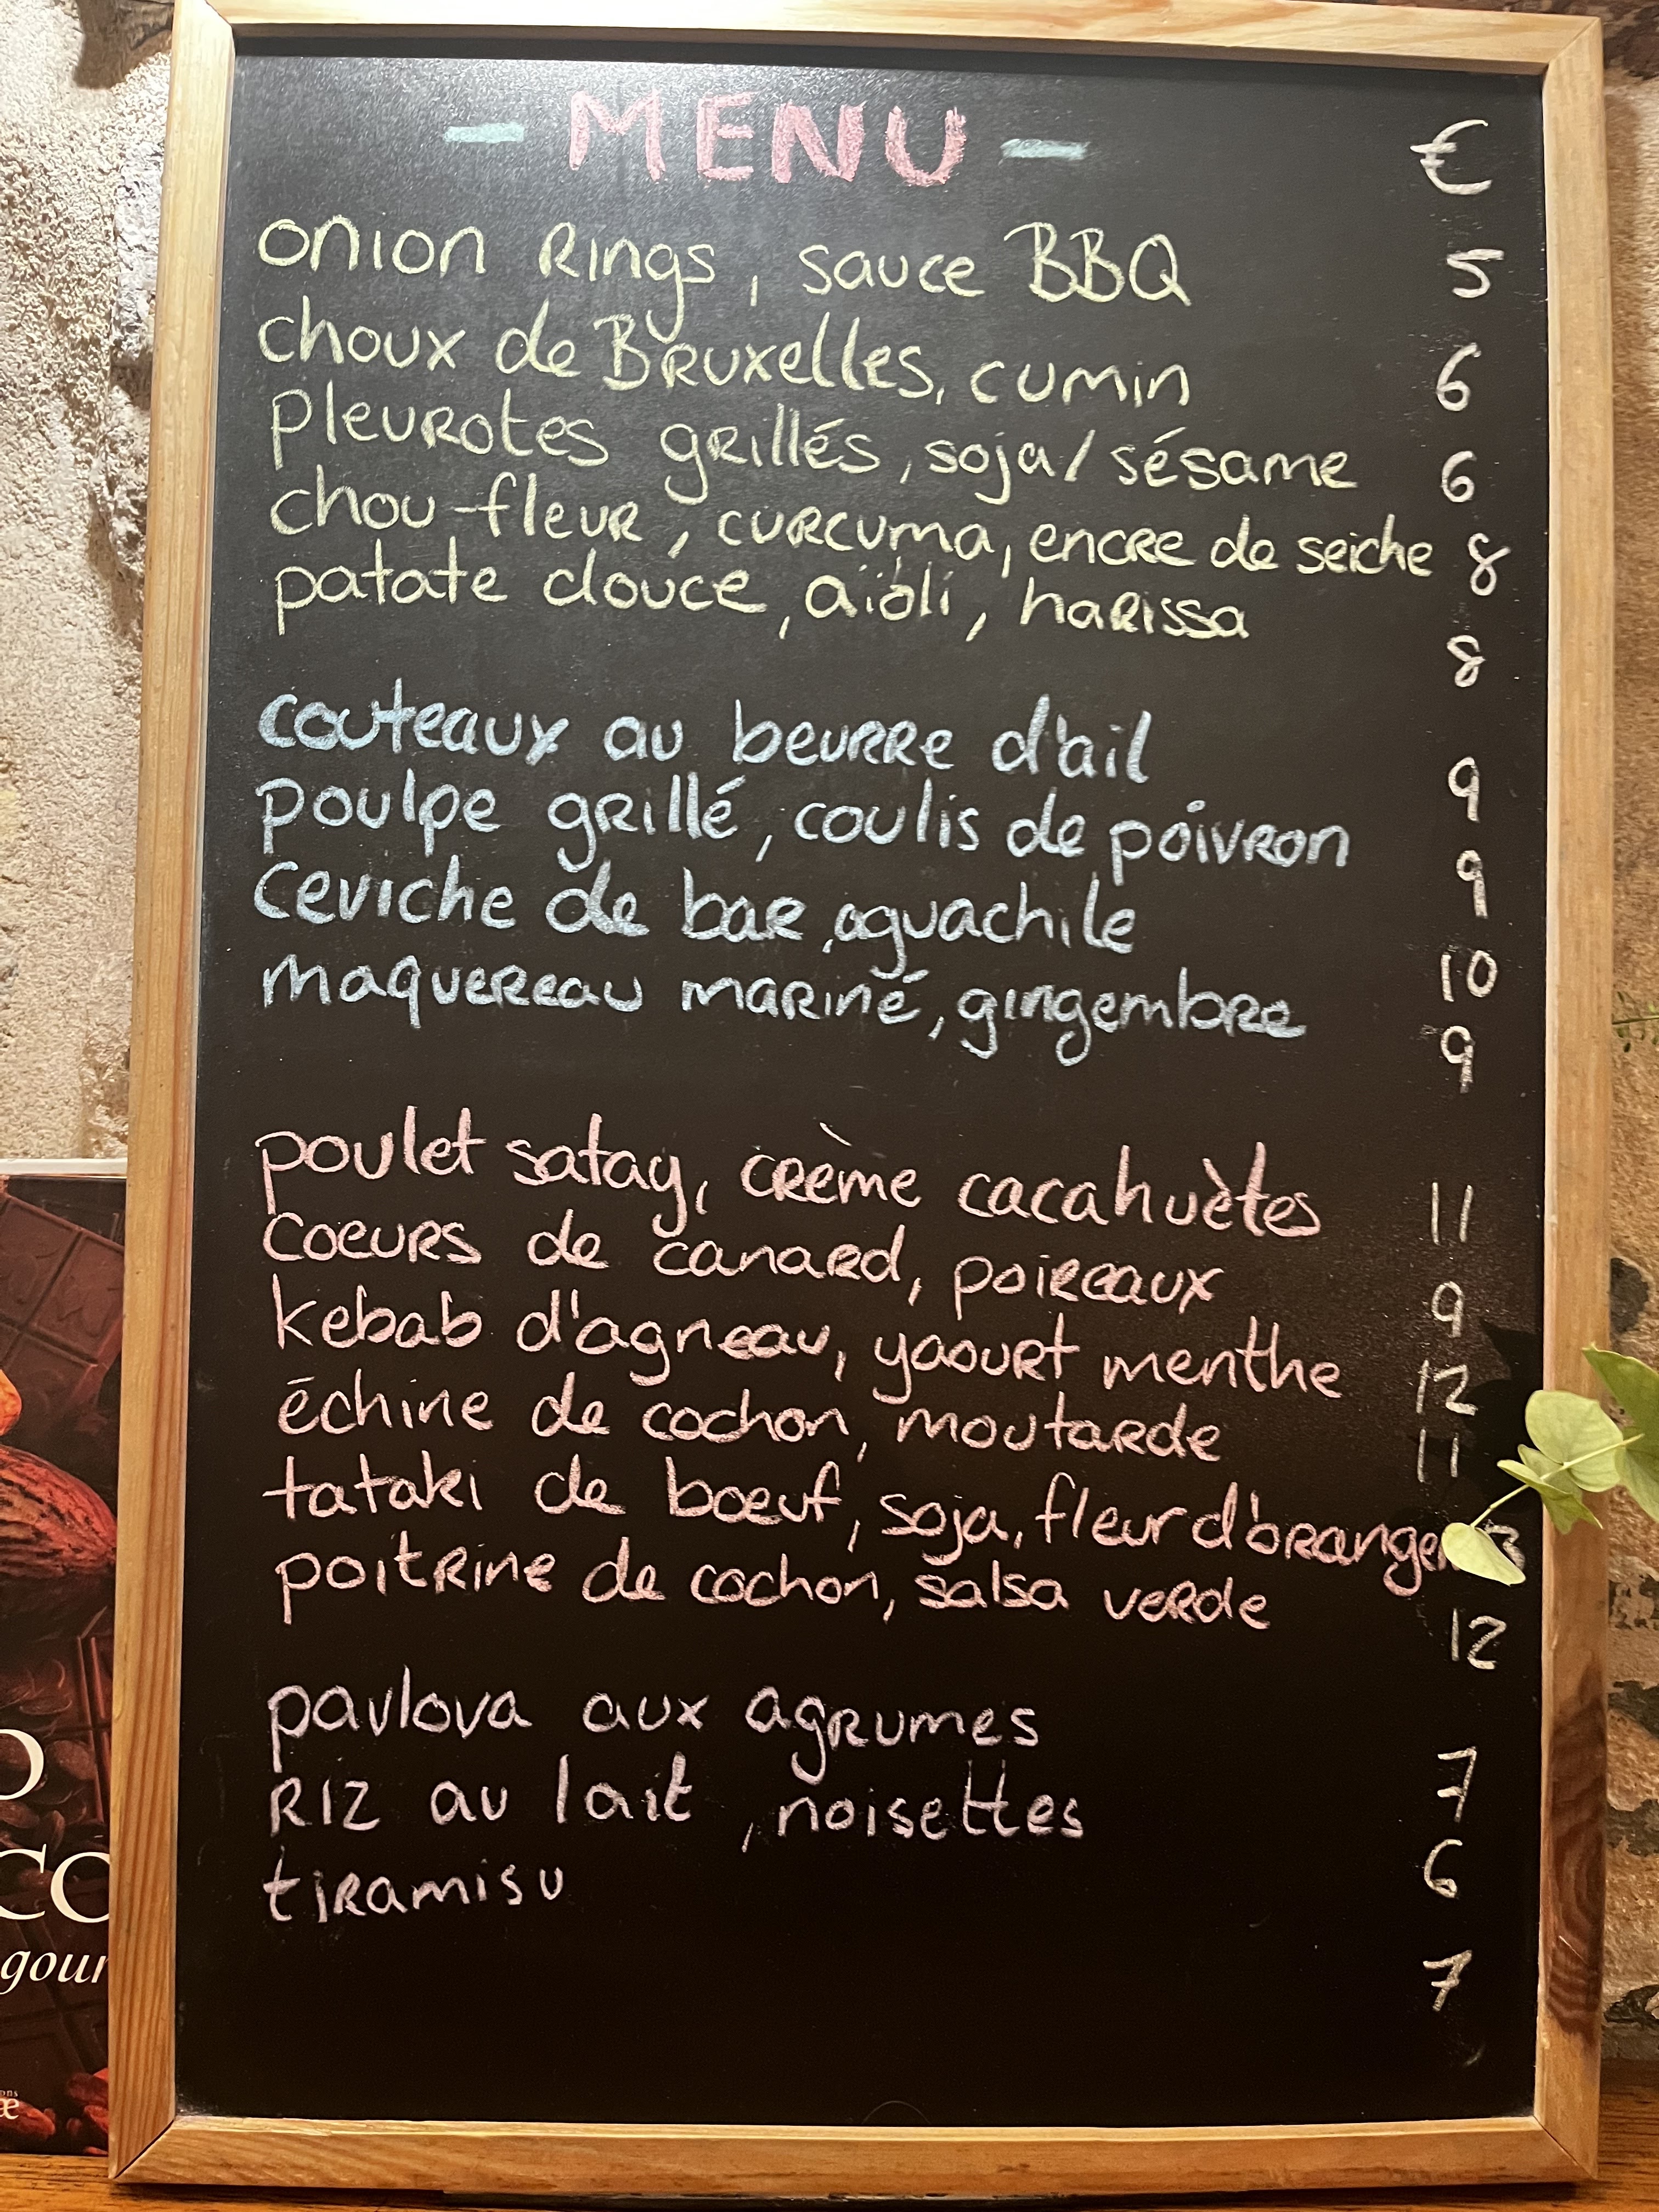 - MENU - €
onion rings, sauce BBQ 5
choux de Bruxelles, cumin 6
pleurotes grillés, soja/sésame 6
chou-fleur, curcuma, encre de seiche 8
patate douce, aïoli, harissa 8
couteaux au beurre d'ail 9
poulpe grillé, coulis de poivron 9
ceviche de bar, aguachile 10
maquereau mariné, gingembre 9
poulet satay, crème cacahuètes 11
coeurs de canard, poireaux 9
kebab d'agneau, yaourt menthe 12
échine de cochon, moutarde 11
tataki de bœuf, soja, fleur d'oranger
poitrine de cochon, salsa verde 12
pavlova aux agrumes 7
riz au lait, noisettes 6
tiramisu 7
gour